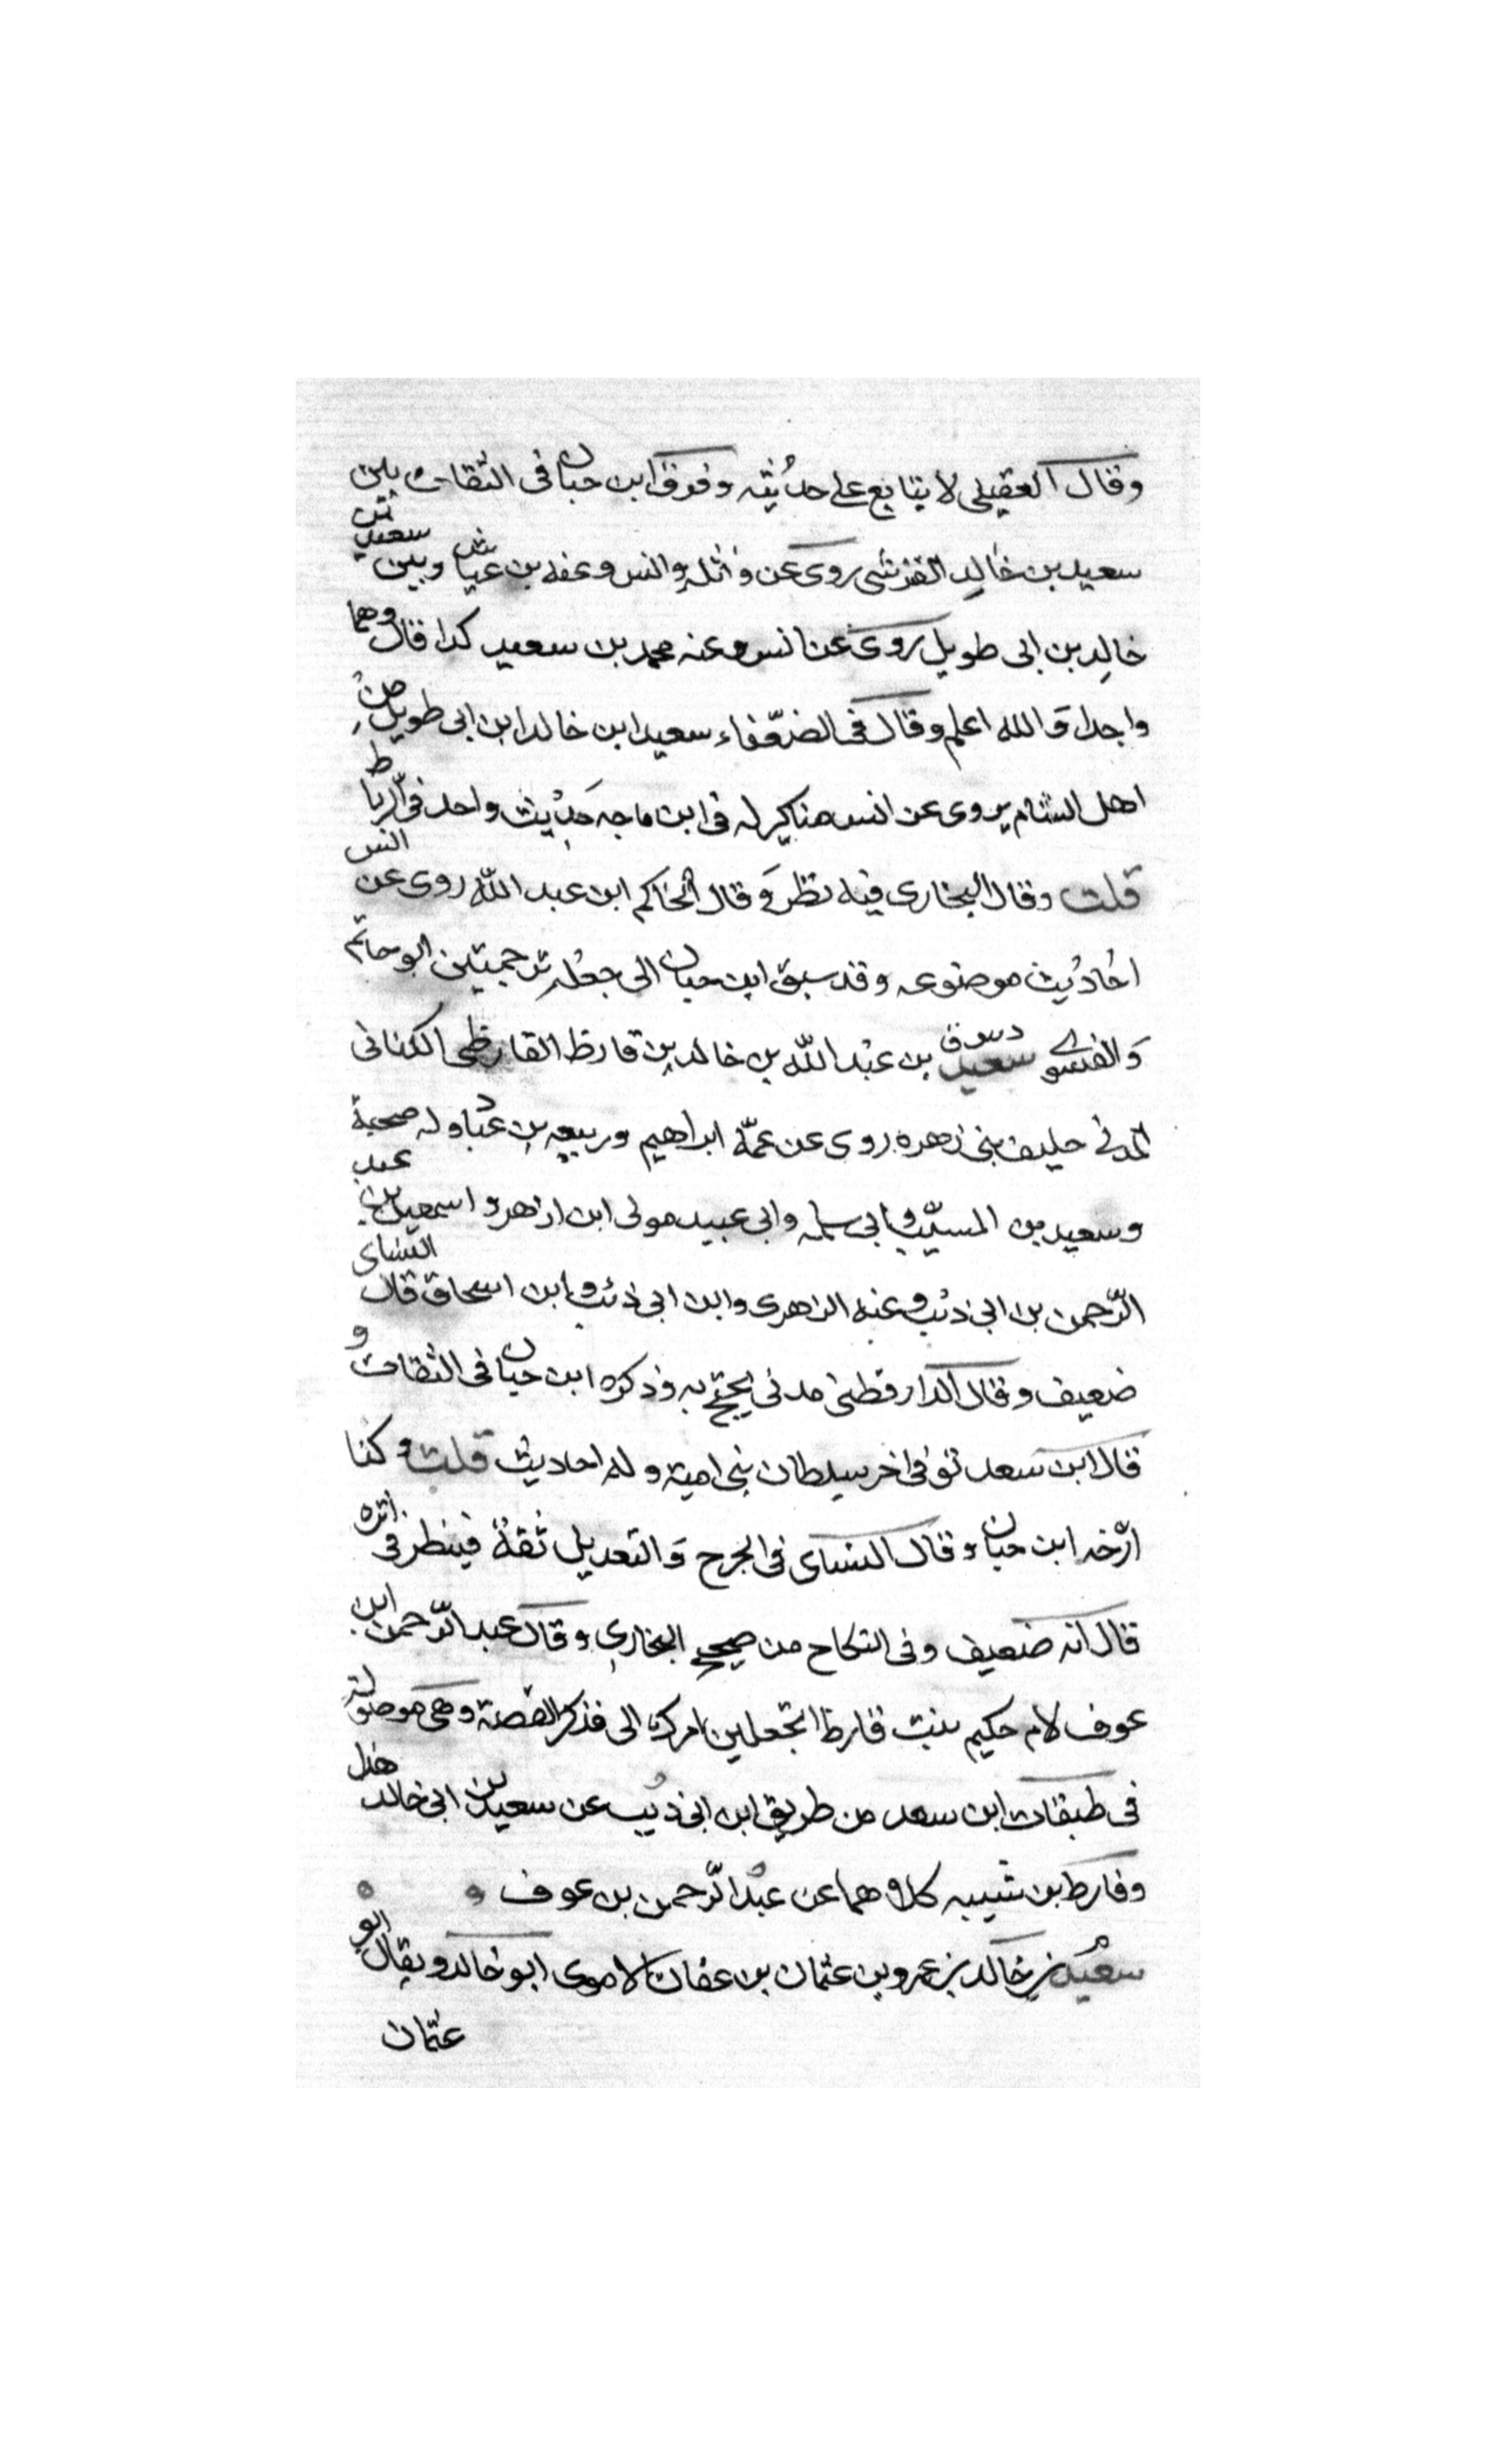 وقال العقيلي لا يتابع على حديثه وفرق ابن حبان في الثقات بين
سعيد بن خالد القرشي روى عن واثلة وانس وعنه بن عياش وبين سعيد بن
خالد بن ابي طويل روى عن انس وعنه محمد بن سعيد كذا قال وهما
واحدا والله اعلم وقال في الضعفاء سعيد ابن خالد ابن ابي طويل من
اهل الشام يروى عن انس مناكير له في ابن ماجه حديث واحد في الرباط
قلت وقال البخارى فيه نظر وقال الحاكم ابن عبد الله روى عن انس
احاديث موضوعه وقد سبق ابن حبان الى جعله ترجمتين ابو حاتم
والفسوي دس ق سعيد بن عبد الله بن خالد بن قارظ القارظى الكنانى
المدنى حليف بنى زهره روى عن عمه ابراهيم وربيعه بن عباد وله صحبة
وسعيد بن المسيب وابى سلمه وابى عبيد مولى ابن ازهر واسمعيل بن عبد
الرحمن بن ابى ذئب وعنه الزهرى وابن ابى ذئب وابن اسحاق قال النسائى
ضعيف وقال الدارقطنى مدنى يحتج به وذكره ابن حبان فى الثقات و
قال ابن سعد توفى اخر سلطان بنى امية وله احاديث قلت وكذا
ارخه ابن حبان وقال النسائى فى الجرح والتعديل ثقة فينظر فى انه
قال انه ضعيف وفى النكاح من صحيح البخارى وقال عبد الرحمن ابن
عوف لام حكيم بنت قارظ اتجعلين امرك الى فذكر القصة وهى موصولة
فى طبقات ابن سعد من طريق ابن ابى ذئب عن سعيد بن ابى خالد هذا
وقارظ بن شيبه كلاهما عن عبد الرحمن بن عوف
م سعيد بن خالد بن عمرو بن عثمان بن عفان الاموى ابو خالد ويقال ابو
عثمان